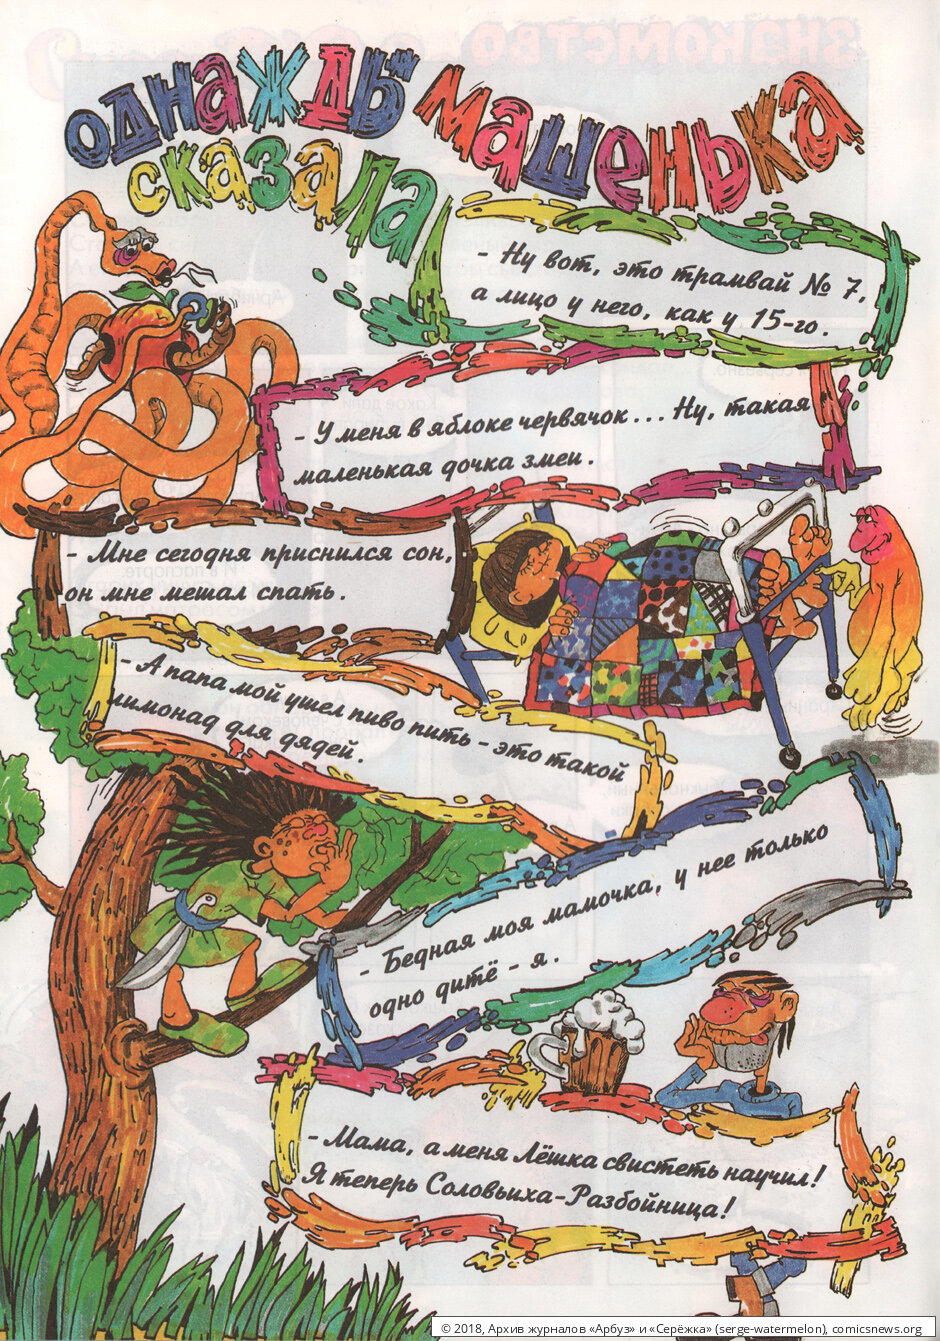 однажды машенька
сказала
- Ну вот, это трамвай № 7,
а лицо у него, как у 15-го.
- У меня в яблоке червячок... Ну, такая
маленькая дочка змеи.
- Мне сегодня приснился сон,
он мне мешал спать.
- А папа мой ушел пиво пить - это такой
лимонад для дядей.
- Бедная моя мамочка, у нее только
одно дитё - я.
- Мама, а меня Лёшка свистеть научил!
Я теперь Соловьиха-Разбойница!
© 2018, Архив журналов «Арбуз» и «Серёжка» (serge-watermelon), comicsnews.org